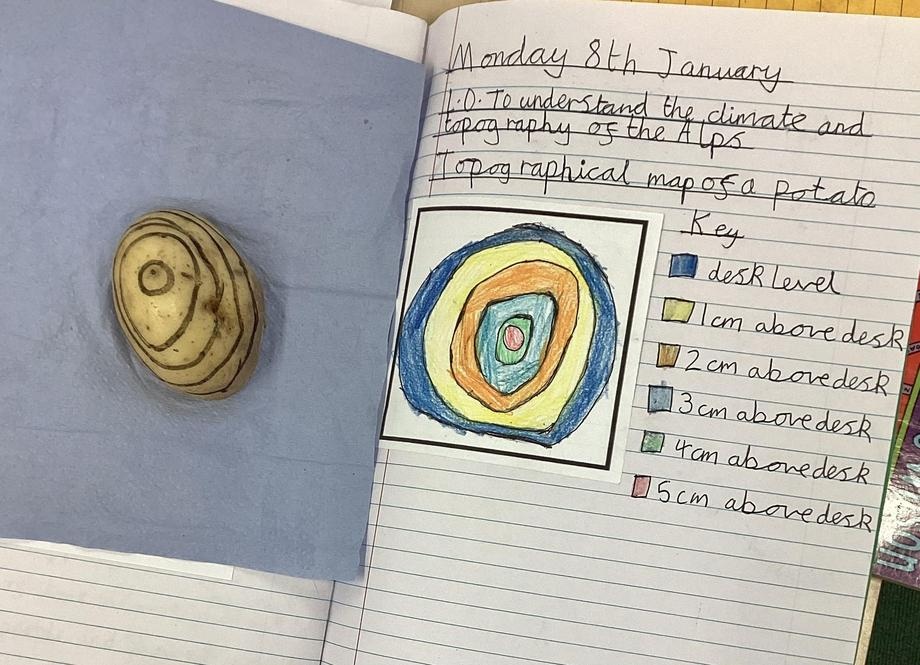 Monday 8th January
L.O. To understand the climate and
topography of the Alps
Topographical map of a potato
Key
desk level
1cm above desk
2cm above desk
3cm above desk
4cm above desk
5cm above desk